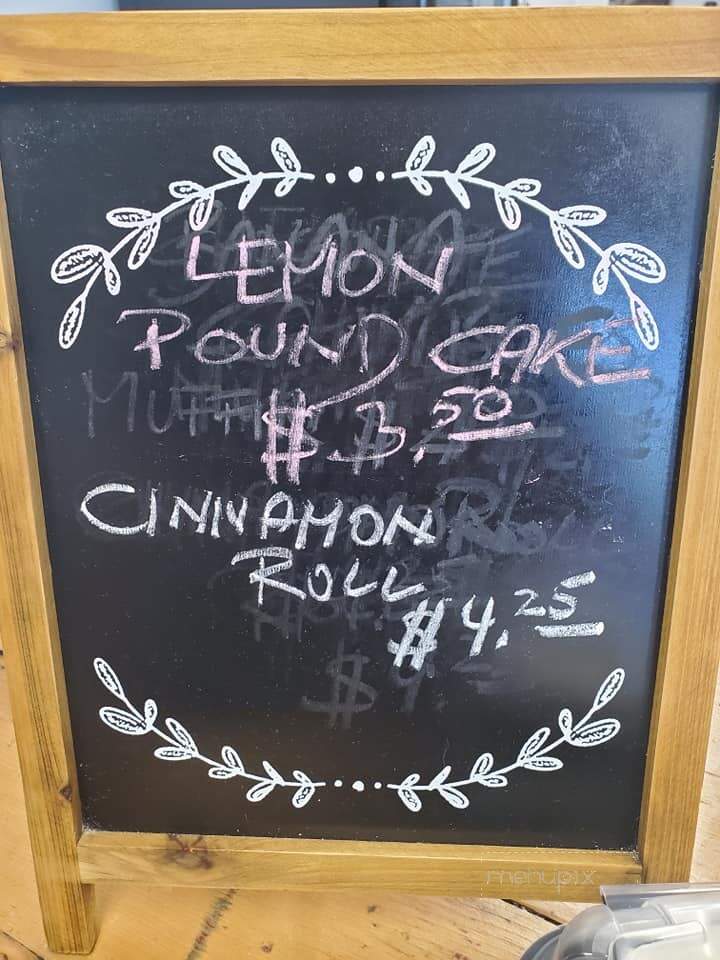 LEMON
POUND CAKE
$3.50
CINNAMON
ROLL
$4.25
menupix